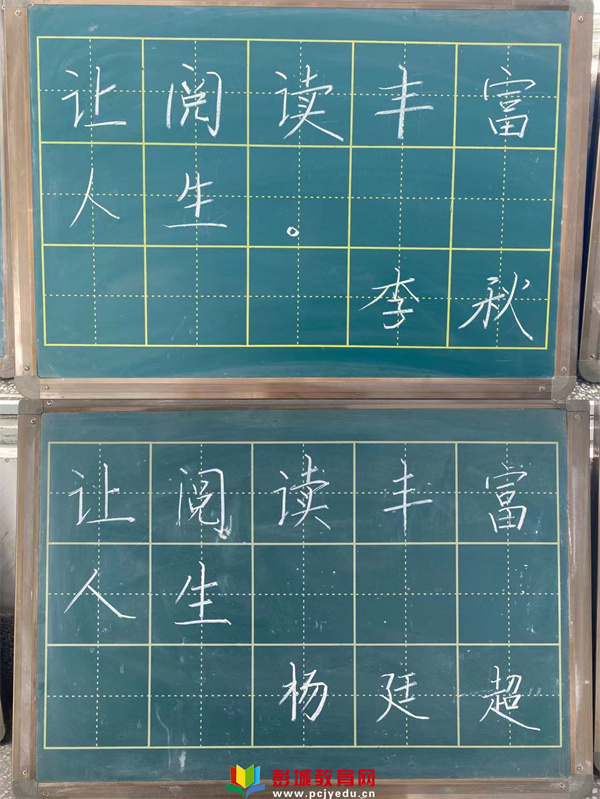 让阅读丰富
人生。
李秋
让阅读丰富
人生
杨廷超
彭城教育网
www.pcjyedu.cn